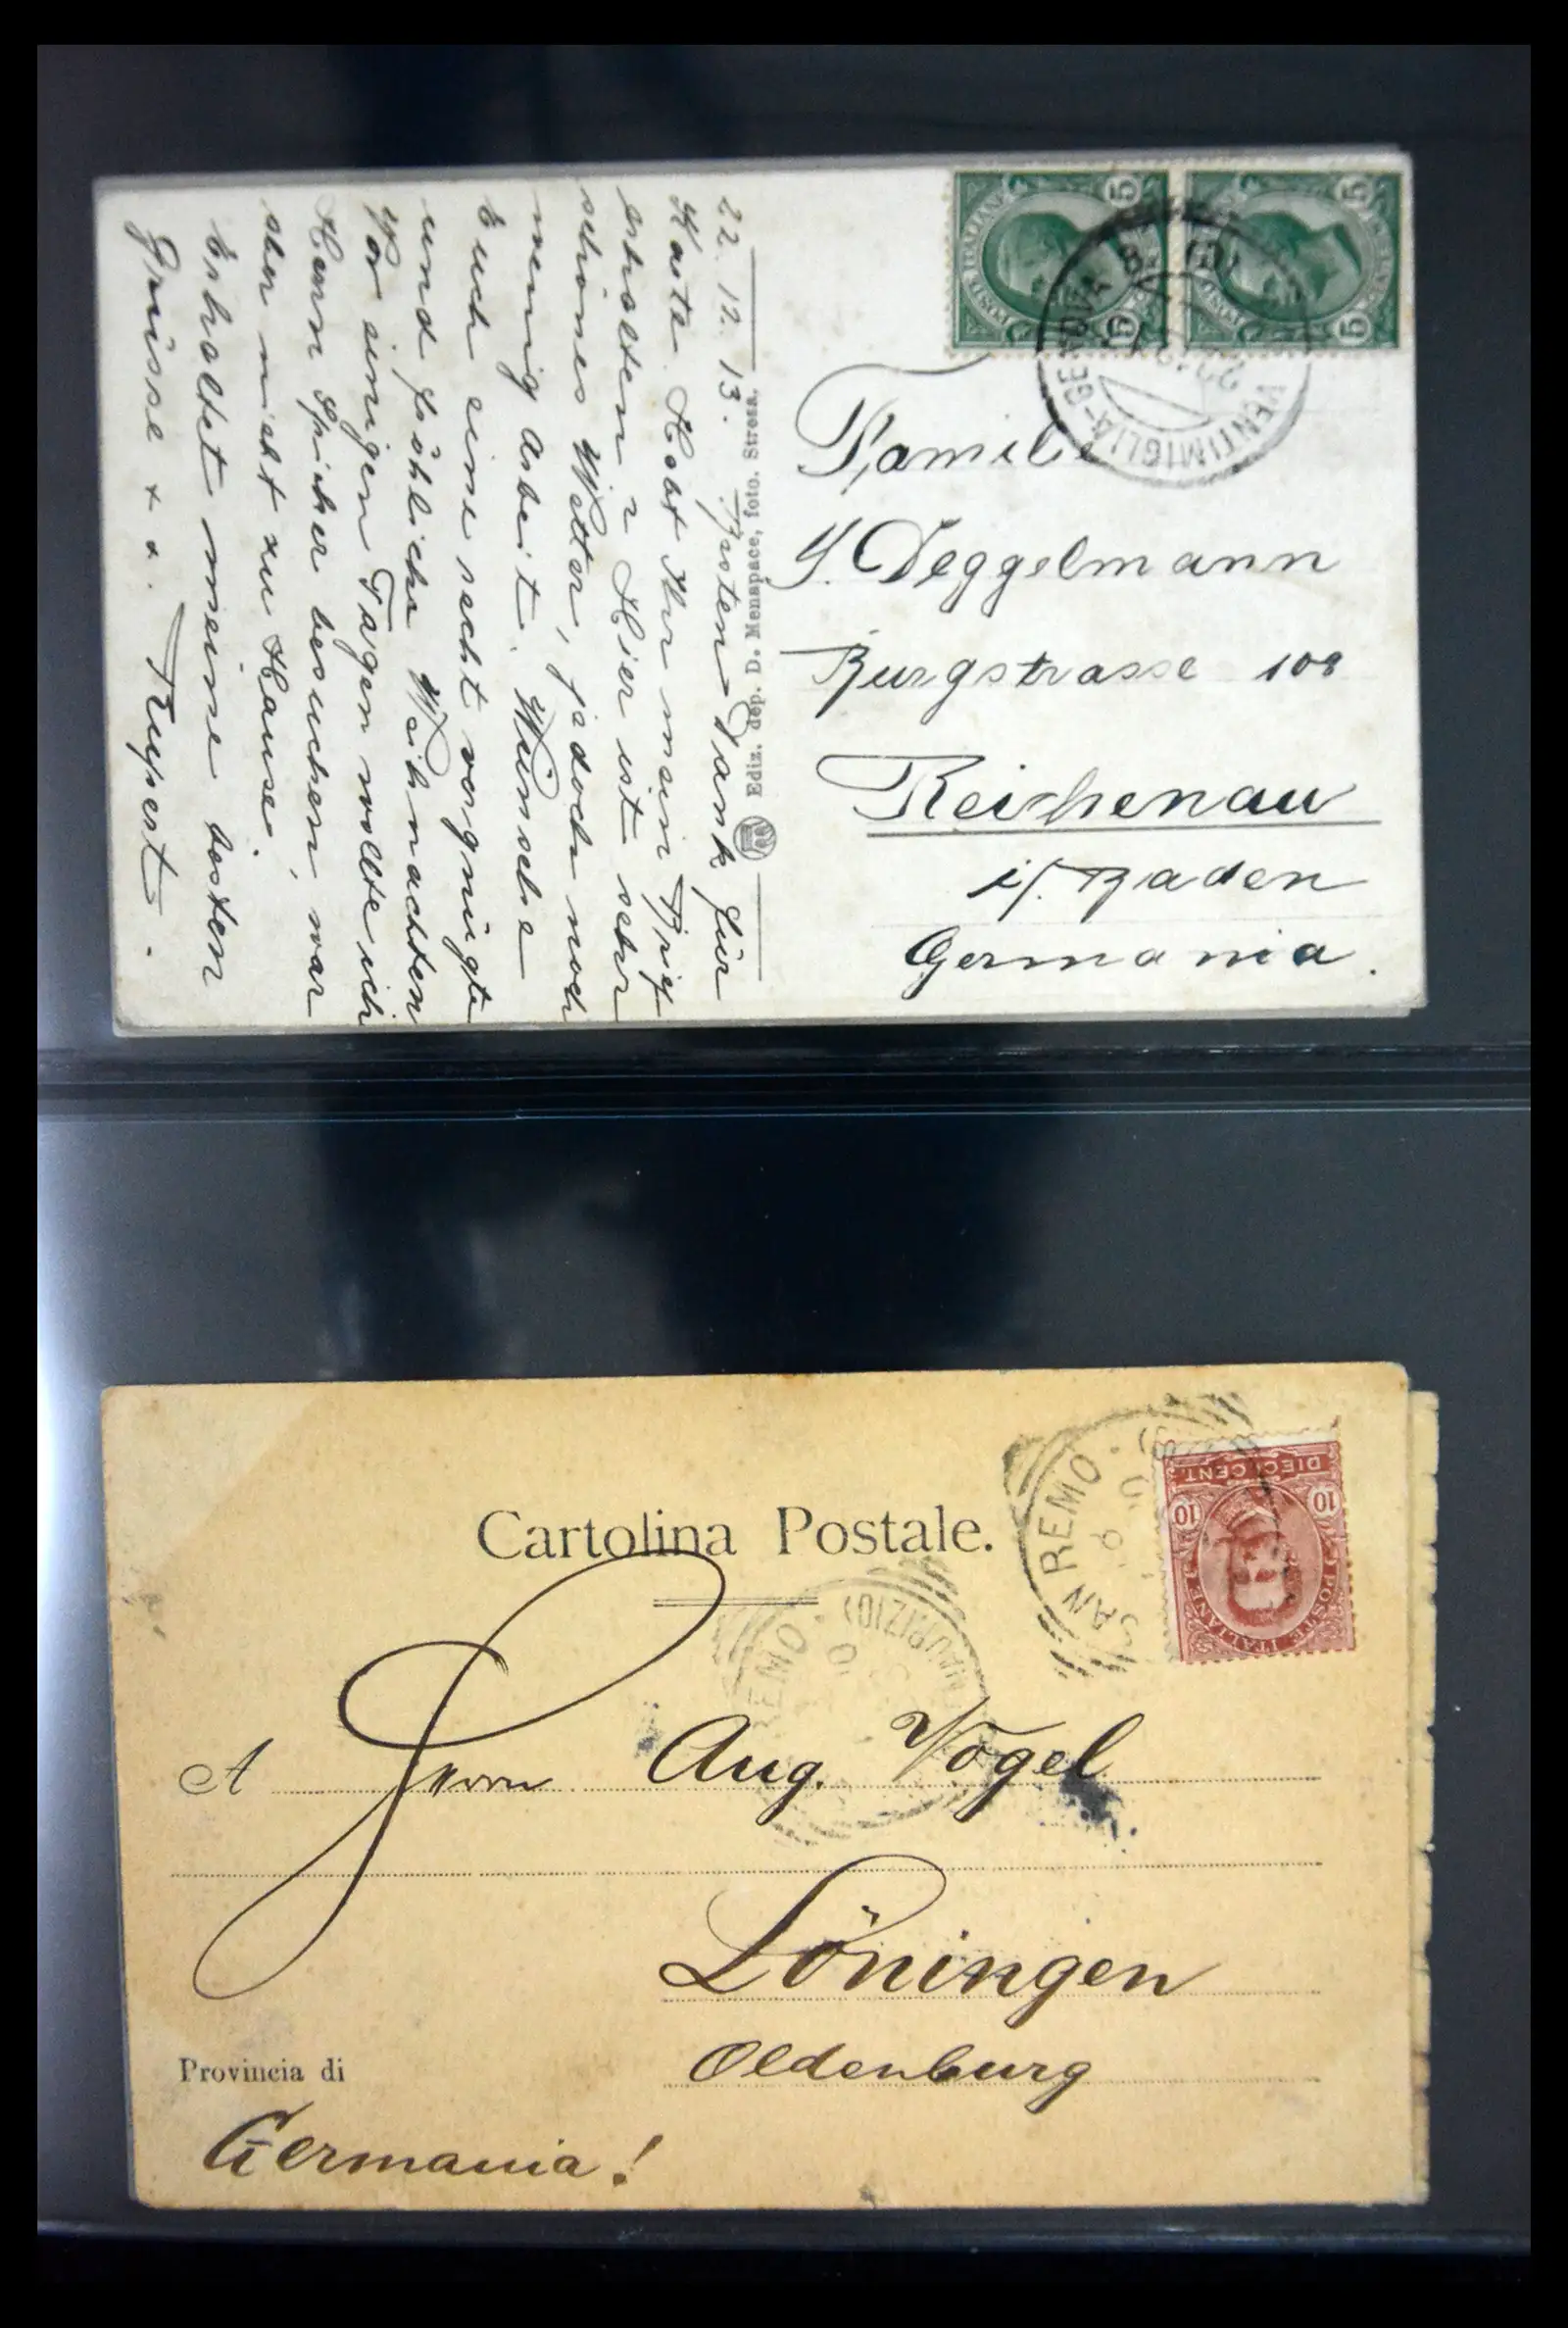 22. 12. 13. Besten Dank für
Karte. Habt Ihr mein Brief
erhalten? Hier ist sehr
schönes Wetter, jedoch noch
wenig Arbeit. Wünsche
Euch eine recht vergnügte
und fröhliche Weihnachten
Vor einigen Tagen wollte ich
Herrn Spicher besuchen, war
aber nicht zu Hause.
Erhaltet meine besten
Grüsse x x. Rupert.
Ediz. dep. D. Menapace, foto. Stresa.
POSTE ITALIANE
5 5
POSTE ITALIANE
5 5
VENTIMIGLIA-GENOVA
Familie
J. Deggelmann
Burgstrasse 108
Reichenau
i/. Baden
Germania.
Cartolina Postale.
SAN REMO
POSTE ITALIANE
10 10
DIECI CENT.
REMO
MAURIZIO)
A Herrn Aug. Vogel
Löningen
Oldenburg
Provincia di
Germania!